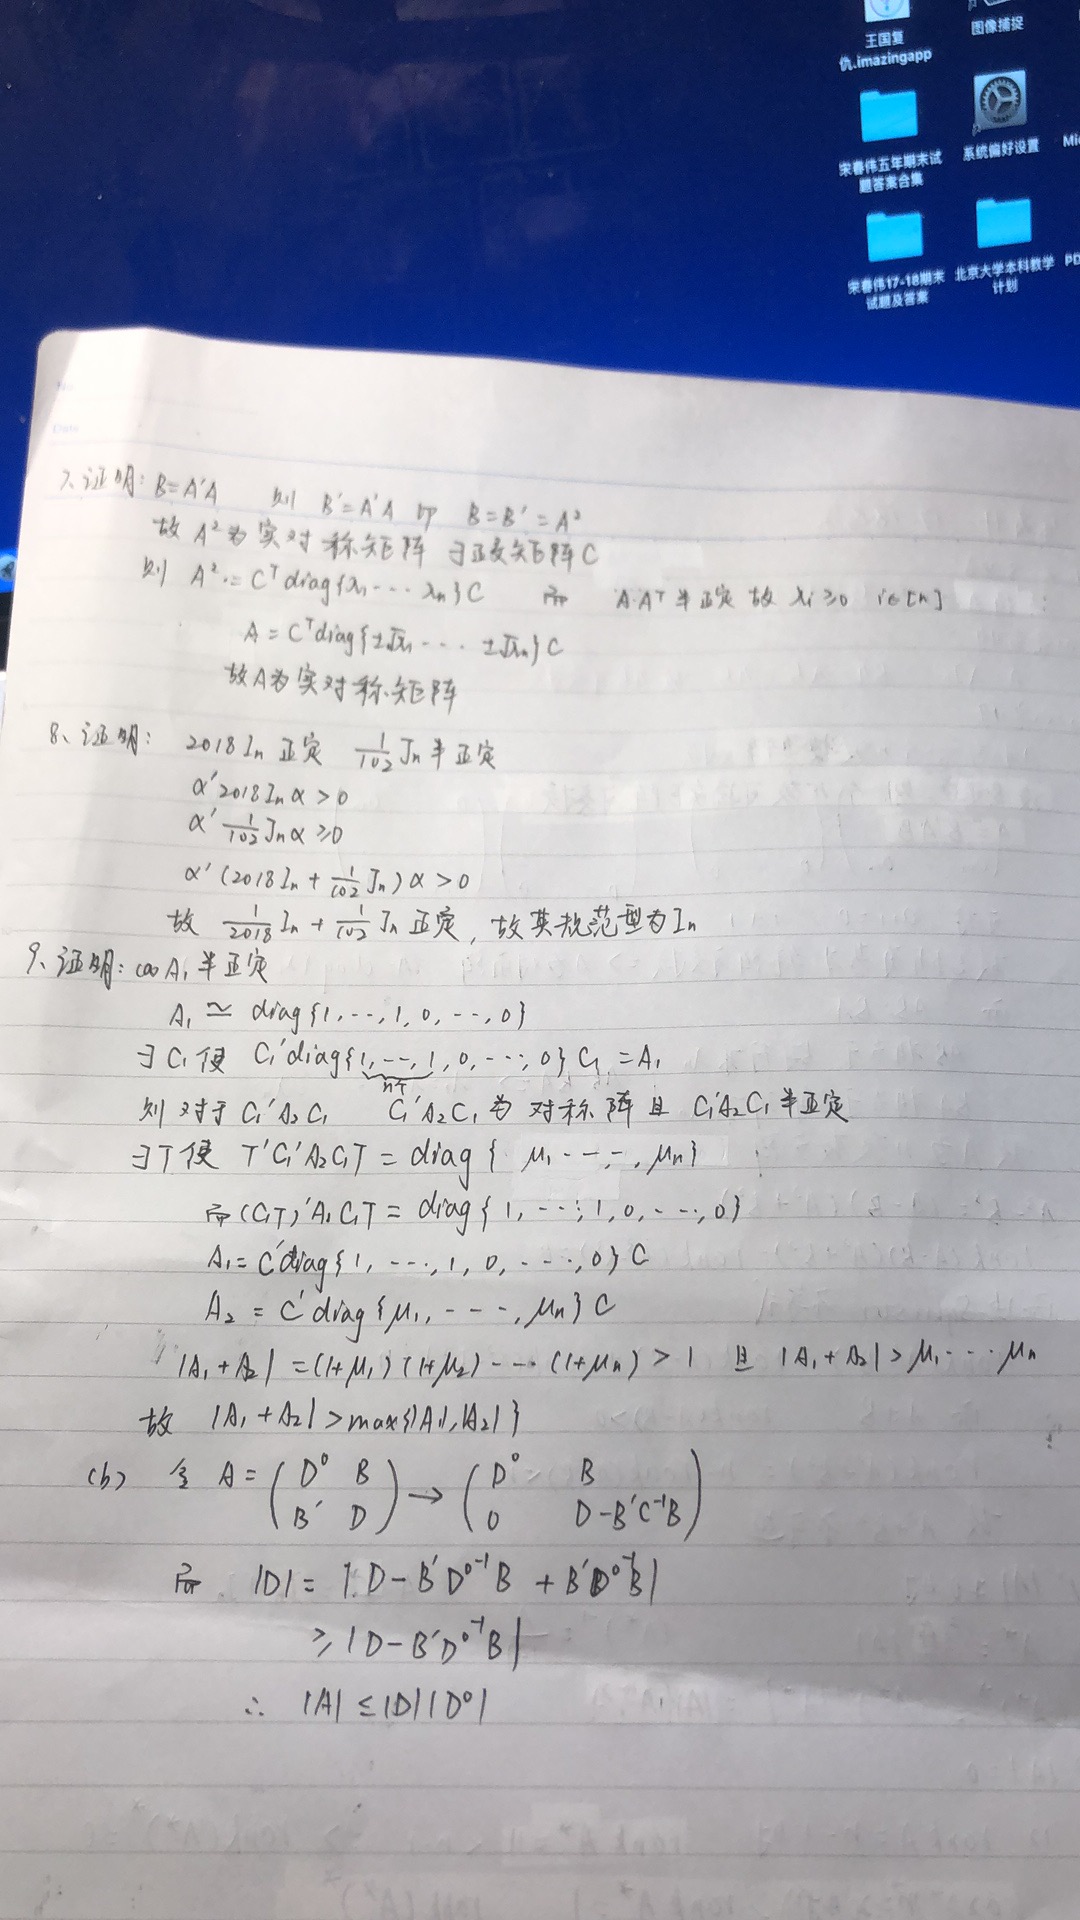 王国复
仇.imazingapp
图像捕捉
宋春伟五年期末试
题答案合集
系统偏好设置
宋春伟17-18期末
试题及答案
北京大学本科教学
计划
No.
Date
7、证明: B=A'A 则 B'=A'A 即 B=B'=A²
故 A²为实对称矩阵 ∃正交矩阵C
则 A²=Cᵀdiag{λ₁···λn}C 而 A·Aᵀ半正定 故 λi≥0 i∈[n]
A=Cᵀdiag{±√λ₁···±√λn}C
故A为实对称矩阵
8、证明: 2018In 正定 1/102 Jn半正定
α'2018Inα>0
α' 1/102 Jnα≥0
α'(2018In+1/102 Jn)α>0
故 1/2018 In+1/102 Jn 正定,故其规范型为In
9、证明: (a) A₁半正定
A₁≃diag{1,···,1,0,···,0}
∃C₁使 C₁'diag{1,···,1,0,···,0}C₁=A₁
则对于C₁'A₂C₁ C₁'A₂C₁为对称阵且 C₁'A₂C₁半正定
∃T使 T'C₁'A₂C₁T=diag{μ₁···,μn}
而(C₁T)'A₁C₁T=diag{1,···,1,0,···,0}
A₁=C'diag{1,···,1,0,···,0}C
A₂=C'diag{μ₁,···,μn}C
|A₁+A₂|=(1+μ₁)(1+μ₂)···(1+μn)>1 且 |A₁+A₂|>μ₁···μn
故 |A₁+A₂|>max{|A₁|,|A₂|}
(b) 令 A=(D⁰ B
B' D)→(D⁰ B
0 D-B'C⁻¹B)
而 |D|=|D-B'D⁰⁻¹B+B'D⁰⁻¹B|
≥|D-B'D⁰⁻¹B|
∴ |A|≤|D||D⁰|